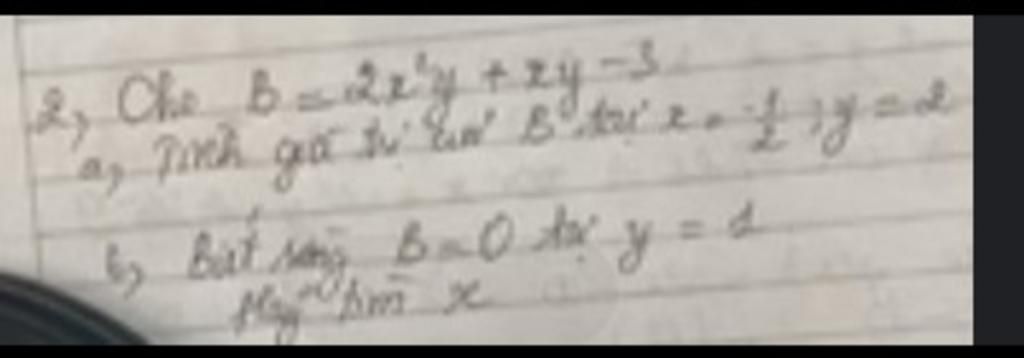 2, Cho B = 2x²y + xy - 3
a, Tính giá trị của B tại x = -1/2 ; y = 2
b, Biết rằng B = 0 tại y = 1
Hãy tìm x